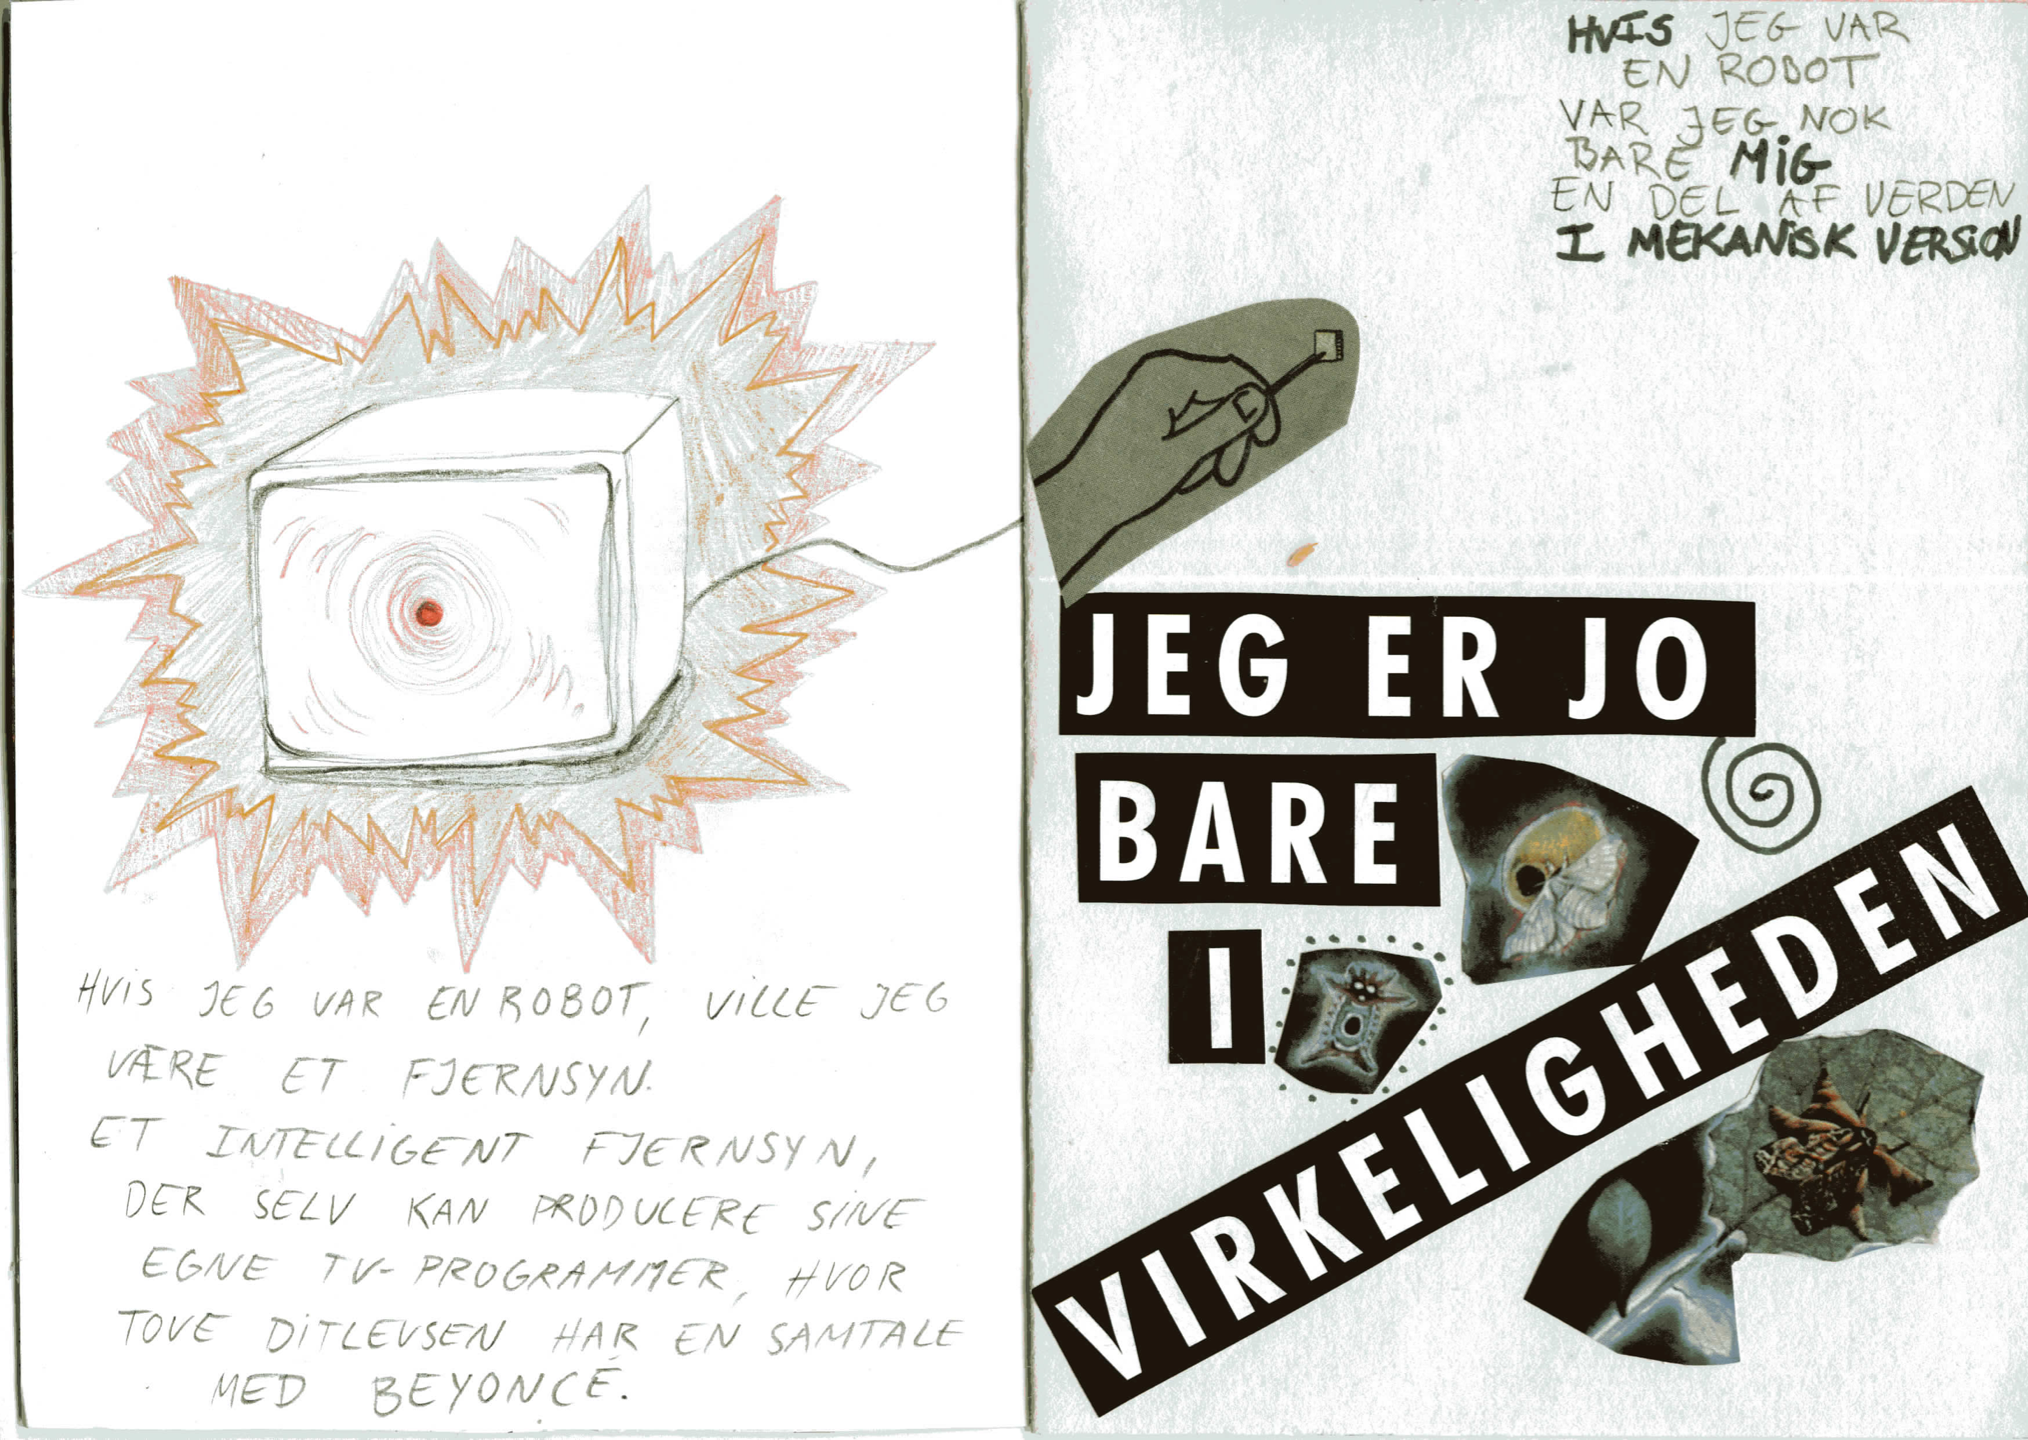 HVIS JEG VAR EN ROBOT, VILLE JEG
VÆRE ET FJERNSYN.
ET INTELLIGENT FJERNSYN,
DER SELV KAN PRODUCERE SINE
EGNE TV-PROGRAMMER, HVOR
TOVE DITLEVSEN HAR EN SAMTALE
MED BEYONCÉ.
HVIS JEG VAR
EN ROBOT
VAR JEG NOK
BARE MIG
EN DEL AF VERDEN
I MEKANISK VERSION
JEG ER JO
BARE
I
VIRKELIGHEDEN